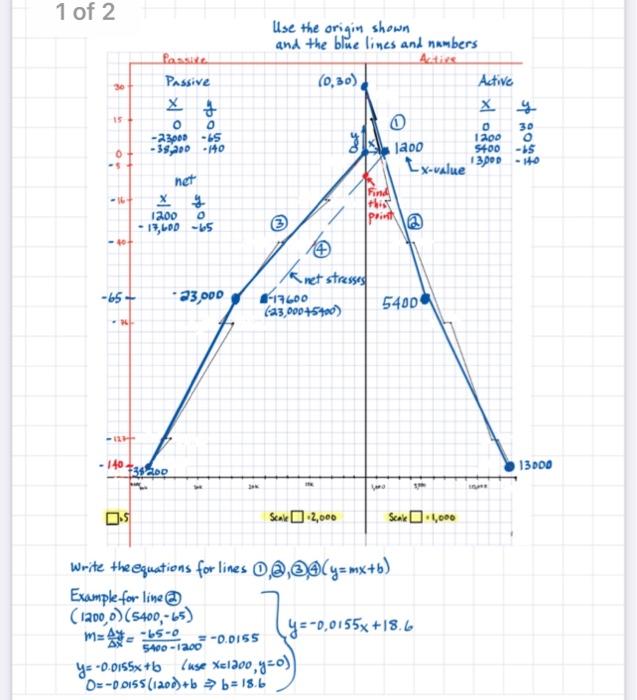 1 of 2
Use the origin shown
and the blue lines and numbers
Passive
Active
Passive
x y
0 0
-23,000 -65
-38,200 -140
net
x y
1200 0
-17,600 -65
(0,30)
Active
x y
0 30
1200 0
5400 -65
13,000 -140
30
15
0
-5
-16
-40
-65
-76
-127
-140
①
1200
x-value
Find
this
point
②
③
④
net stresses
-23,000
-17600
(-23,000+5400)
5400
-38200
13000
20K
10K
1,000
5,000
10,000
□.5
Scale □ =2,000
Scale □ =1,000
Write the equations for lines ①,②,③,④ (y=mx+b)
Example for line ②
(1200,0) (5400,-65)
m= Δy/Δx = -65-0/5400-1200 = -0.0155
y=-0.0155x+18.6
y=-0.0155x+b (use x=1200, y=0)
0=-0.0155(1200)+b ⇒ b=18.6